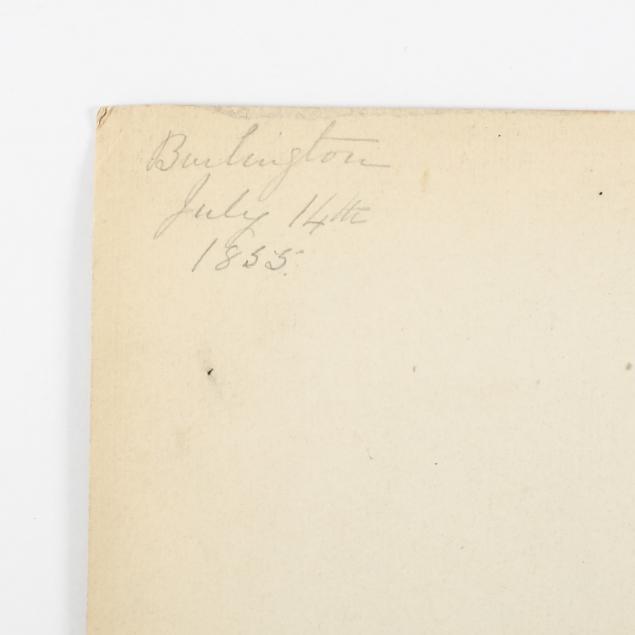 Burlington
July 14th
1855.